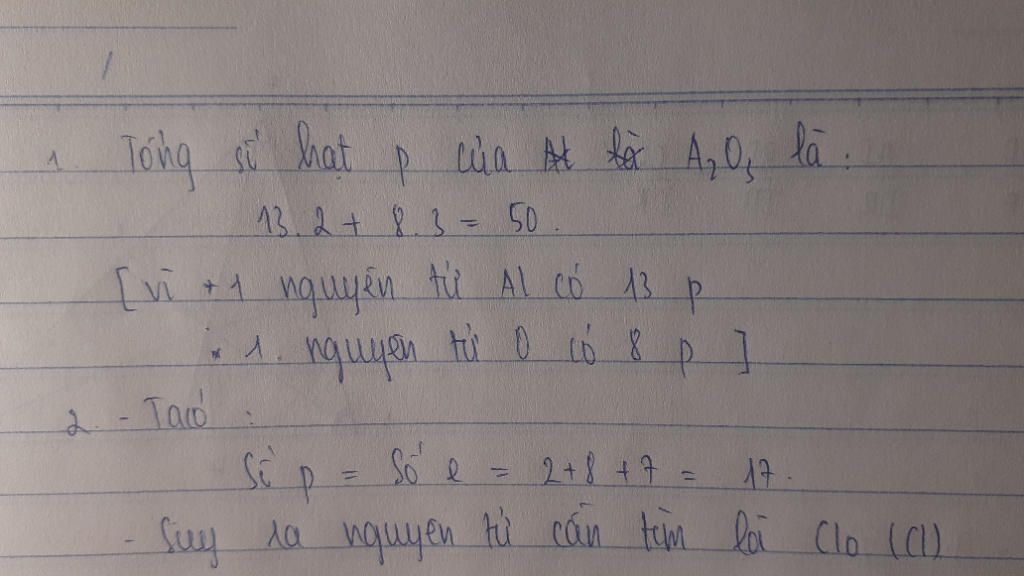 1. Tổng số hạt p của A₂O₃ là:
13.2 + 8.3 = 50.
[vì + 1 nguyên tử Al có 13 p
* 1. nguyên tử O có 8 p ]
2. - Ta có :
Số p = Số e = 2+8+7 = 17.
- Suy ra nguyên tử cần tìm là Clo (Cl)